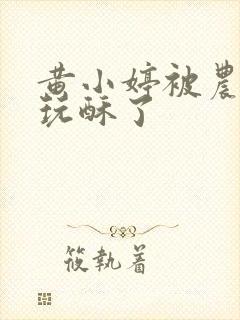 黄小婷被農
玩酥了
筱執着